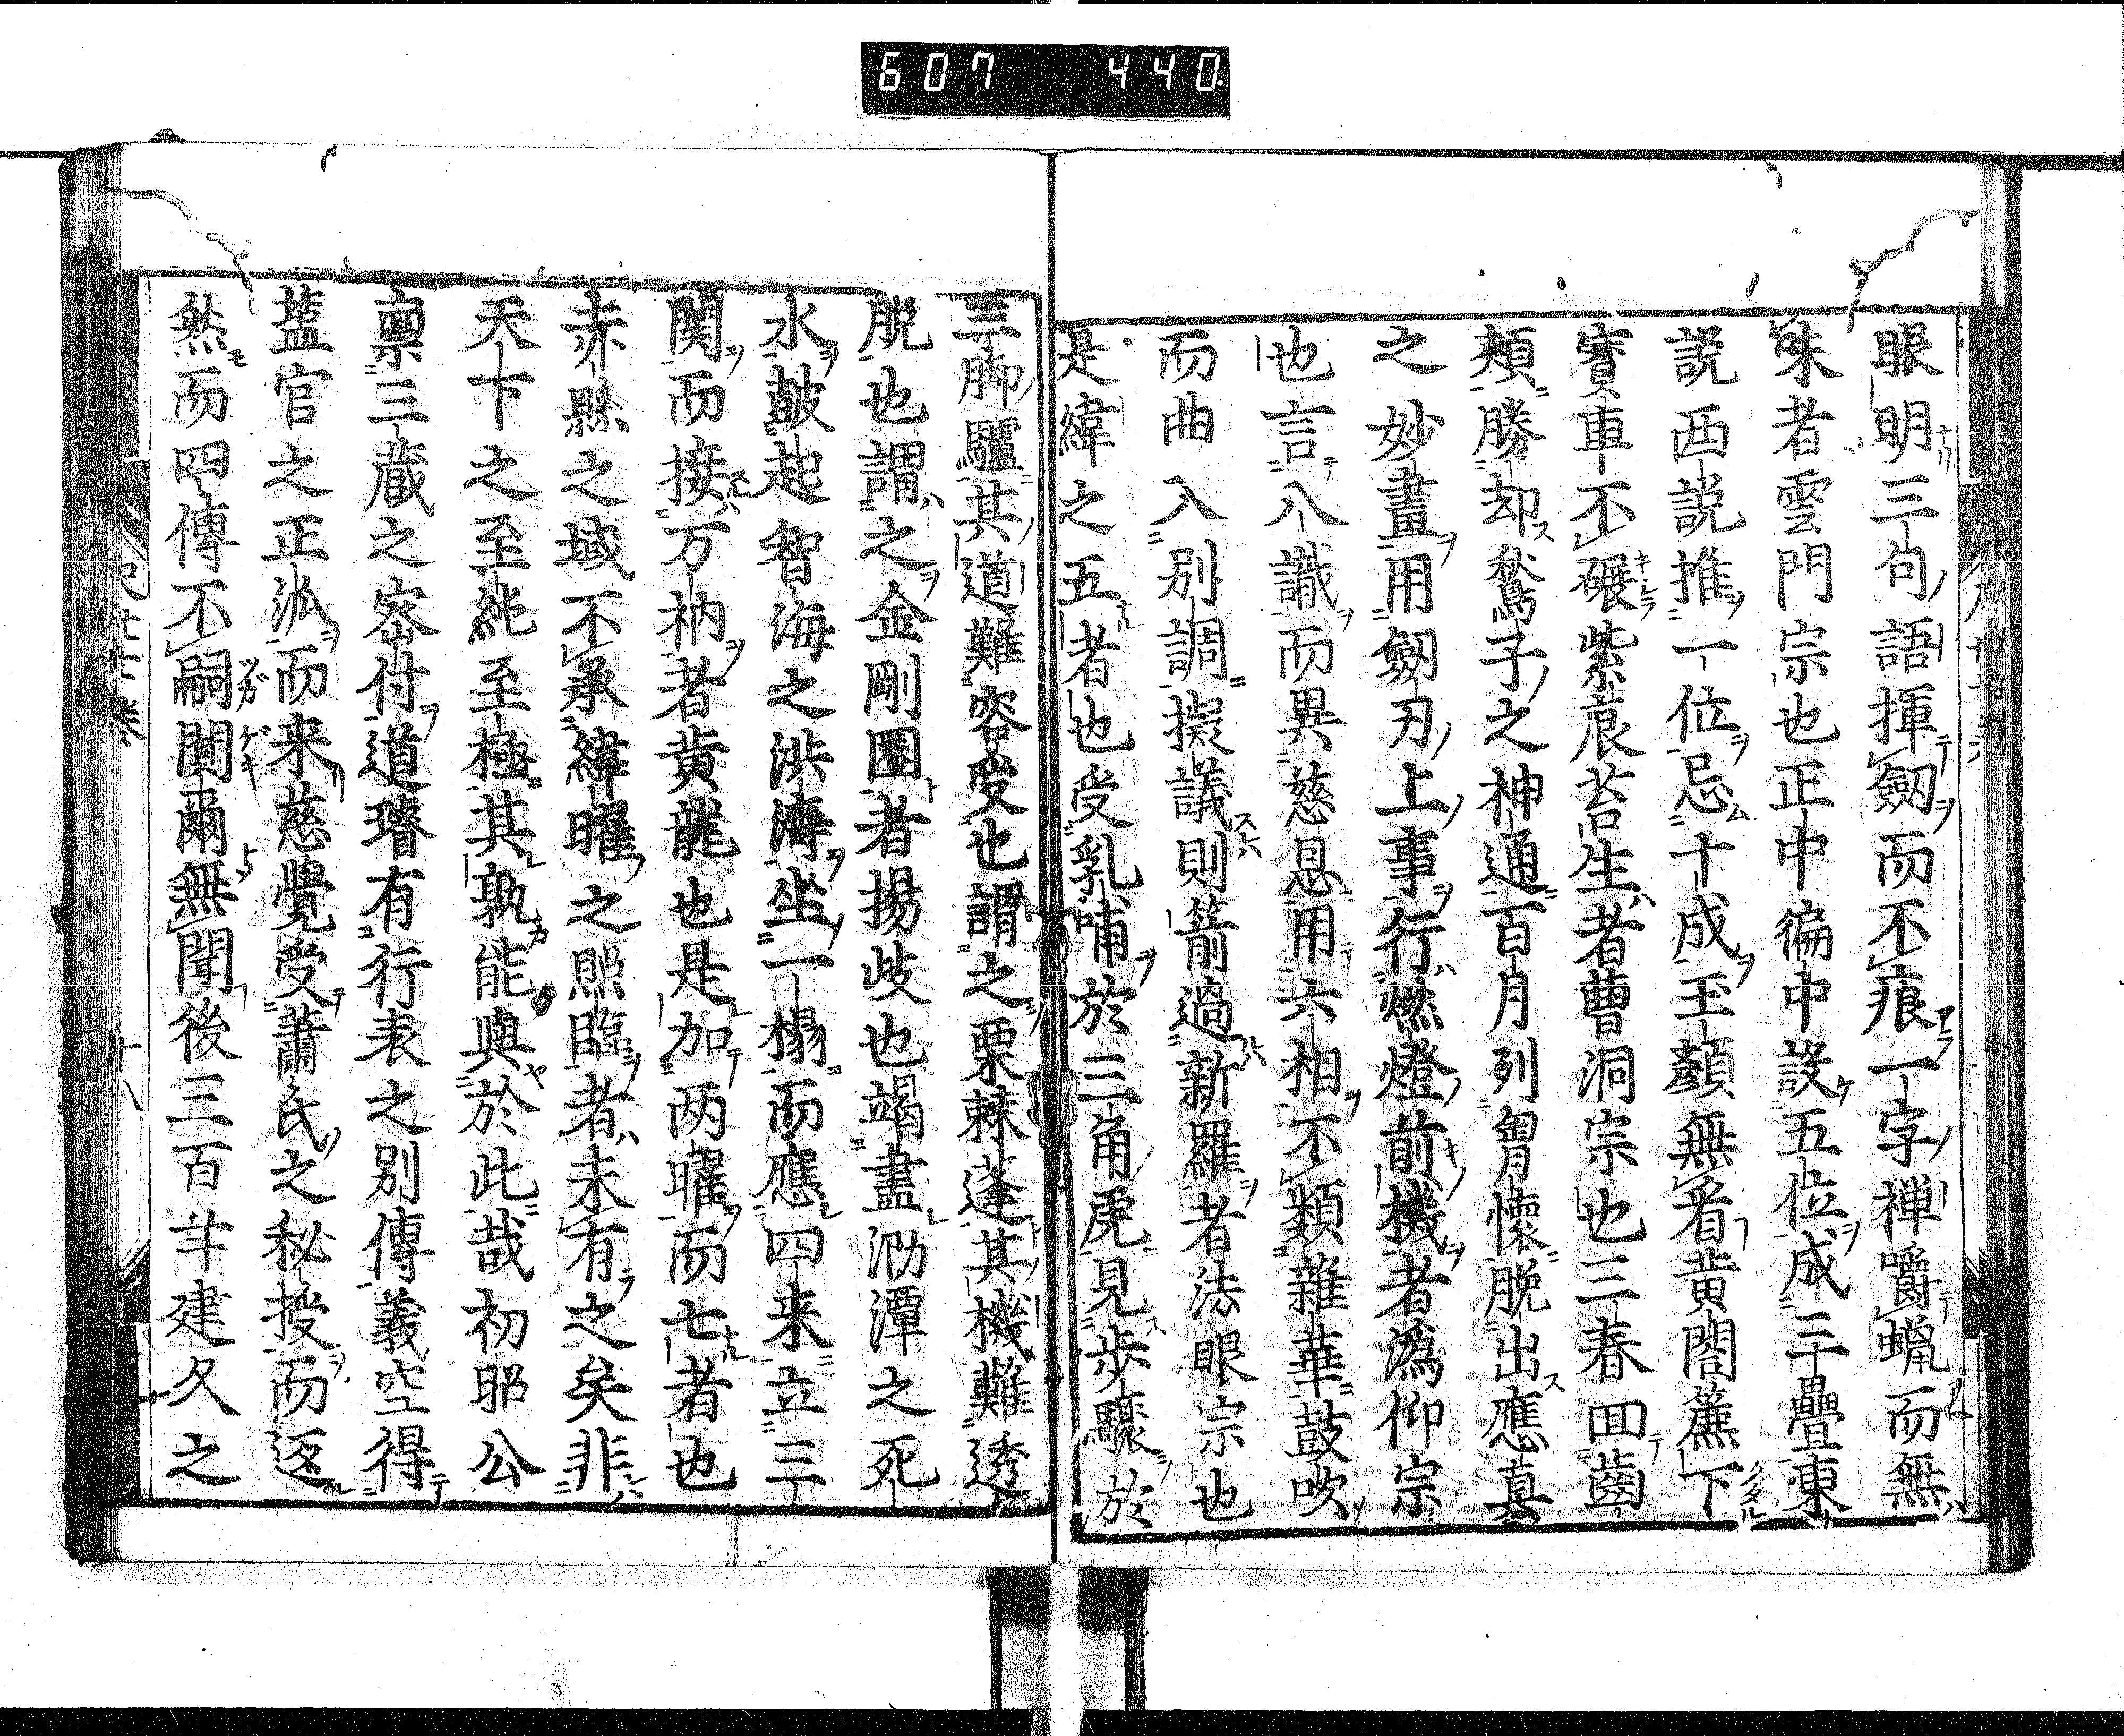 607 440
眼明三句語揮劔而不痕一字禅嚼蝋而無
味者雲門宗也正中中徧中設五位成三疊東
説西説推一位忌十成玉顔無看黄閤簾下
寳車不碾紫宸苔生者曹洞宗也三春回齒
頬勝却鶖子之神通百月列胷懐脱出應真
之妙畫用劔刃上事行燃燈前機者潙仰宗
也言八識而異慈恩用六相不類雜華鼓吹
而曲入別調擬議則箭過新羅者法眼宗也
是緯之五者也受乳哺於三角虎見歩驟於
三脚驢其道難容受也謂之栗棘蓬其機難透
脱也謂之金剛圏者揚岐也竭盡泐潭之死
水皷起智海之洪濤坐一榻而應四来立三
関而接万衲者黄龍也是加两曜而七者也
赤縣之域不承緯曜之照臨者未有之矣非
天下之至純至極其孰能與於此哉初昭公
禀三蔵之密付道璿有行表之别傳義空得
葢官之正派而来慈覺受蕭氏之秘授而返
然而四傳不嗣闃爾無聞後三百年建久之